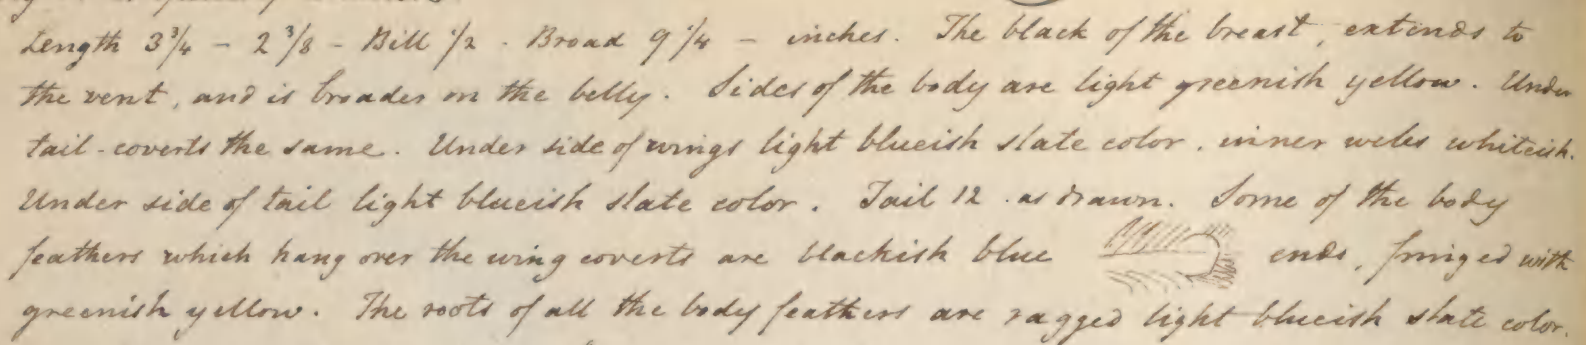 Length 3 3/4 - 2 3/8 - Bill 1/2 . Broad 9 1/4 - inches. The black of the breast, extends to
the vent, and is broader on the belly. Sides of the body are light greenish yellow. Under
tail-coverts the same. Under side of wings light blueish slate color, inner webs whiteish.
Under side of tail light blueish slate color. Tail 12 . as drawn. Some of the body
feathers which hang over the wing coverts are blackish blue ends, fringed with
greenish yellow. The roots of all the body feathers are ragged light blueish slate color.